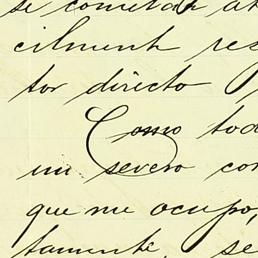 se cometan at
cilmente res
tor directo
Como tod
un severo con
que me ocupo,
tamente, se